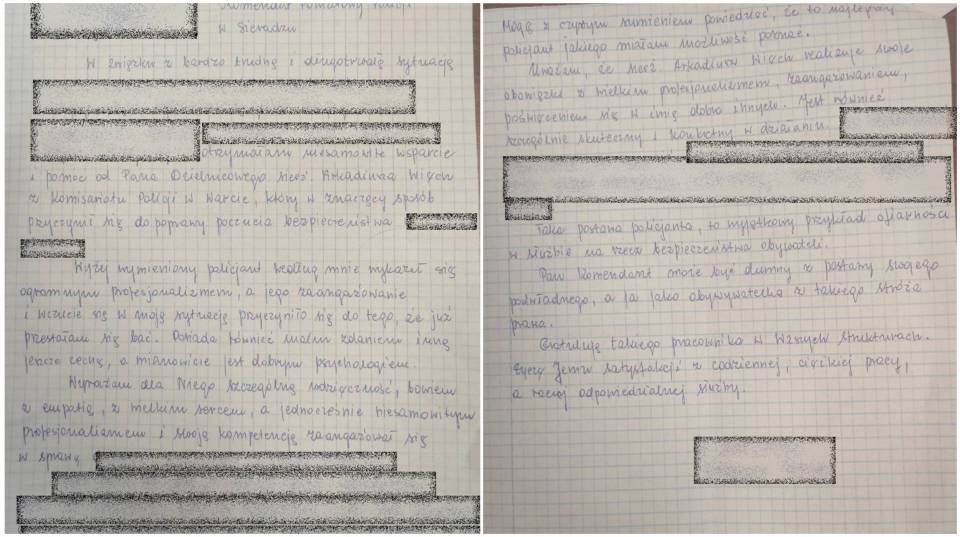 Komendant Powiatowy Policji
w Sieradzu
W związku z bardzo trudną i długotrwałą sytuacją
otrzymałam niesamowite wsparcie
i pomoc od Pana Dzielnicowego sierż. Arkadiusza Więch
z Komisariatu Policji w Warcie, który w znaczący sposób
przyczynił się do poprawy poczucia bezpieczeństwa
Wyżej wymieniony policjant według mnie wykazał się
ogromnym profesjonalizmem, a jego zaangażowanie
i wczucie się w moją sytuację przyczyniło się do tego, że już
przestałam się bać. Posiada również moim zdaniem inną
jeszcze cechę, a mianowicie jest dobrym psychologiem.
Wyrażam dla Niego szczególną wdzięczność, bowiem
z empatią, z wielkim sercem, a jednocześnie niesamowitym
profesjonalizmem i swoją kompetencją zaangażował się
w sprawę
Mogę z czystym sumieniem powiedzieć, że to najlepszy
policjant jakiego miałam możliwość poznać.
Uważam, że sierż. Arkadiusz Więch realizuje swoje
obowiązki z wielkim profesjonalizmem, zaangażowaniem,
poświęceniem się w imię dobra innych. Jest również
szczególnie skuteczny i konkretny w działaniu.
Taka postawa policjanta, to wyjątkowy przykład ofiarności
w służbie na rzecz bezpieczeństwa obywateli.
Pan Komendant może być dumny z postawy swojego
podwładnego, a ja jako obywatelka z takiego stróża
prawa.
Gratuluję takiego pracownika w Waszych strukturach.
Życzę Jemu satysfakcji z codziennej, ciężkiej pracy,
a raczej odpowiedzialnej służby.